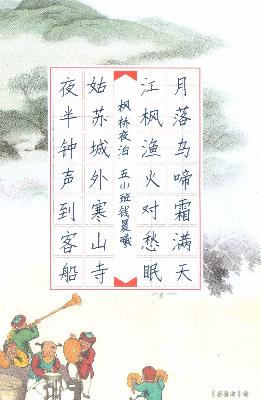 月落乌啼霜满天
江枫渔火对愁眠
枫桥夜泊 五小班钱晨曦
姑苏城外寒山寺
夜半钟声到客船